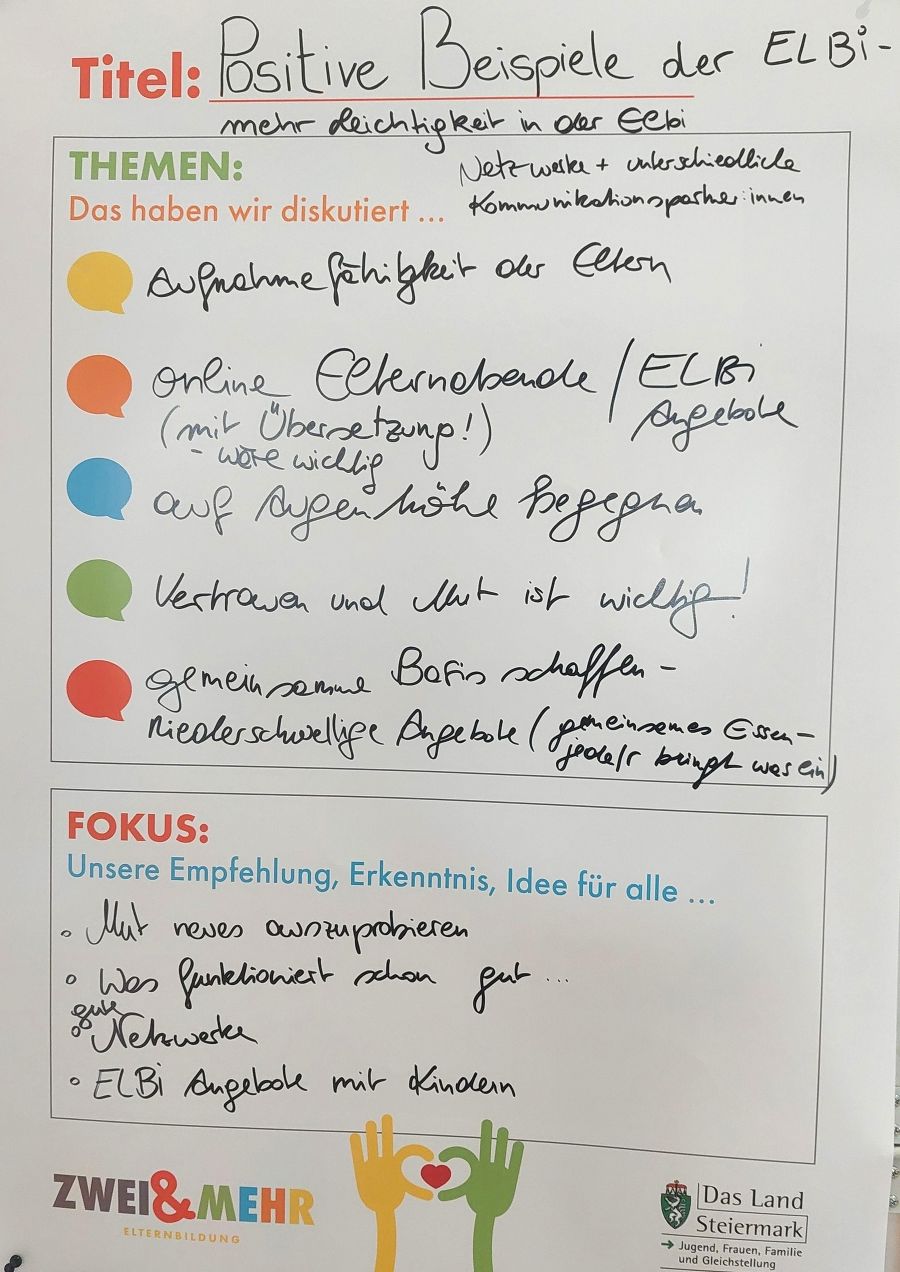 Titel: Positive Beispiele der ELBi-
mehr Leichtigkeit in der Elbi
THEMEN:
Das haben wir diskutiert ...
Netzwerke + unterschiedliche
Kommunikationspartner:innen
Aufnahmefähigkeit der Eltern
online Elternabende / ELBi
Angebote
(mit Übersetzung!)
- wäre wichtig
auf Augenhöhe begegnen
Vertrauen und Mut ist wichtig!
gemeinsame Basis schaffen -
niederschwellige Angebote (gemeinsames Essen -
jede/r bringt was ein)
FOKUS:
Unsere Empfehlung, Erkenntnis, Idee für alle ...
◦ Mut neues auszuprobieren
◦ Was funktioniert schon gut ...
◦ gute Netzwerke
◦ ELBi Angebote mit Kindern
ZWEI&MEHR
ELTERNBILDUNG
Das Land
Steiermark
→ Jugend, Frauen, Familie
und Gleichstellung